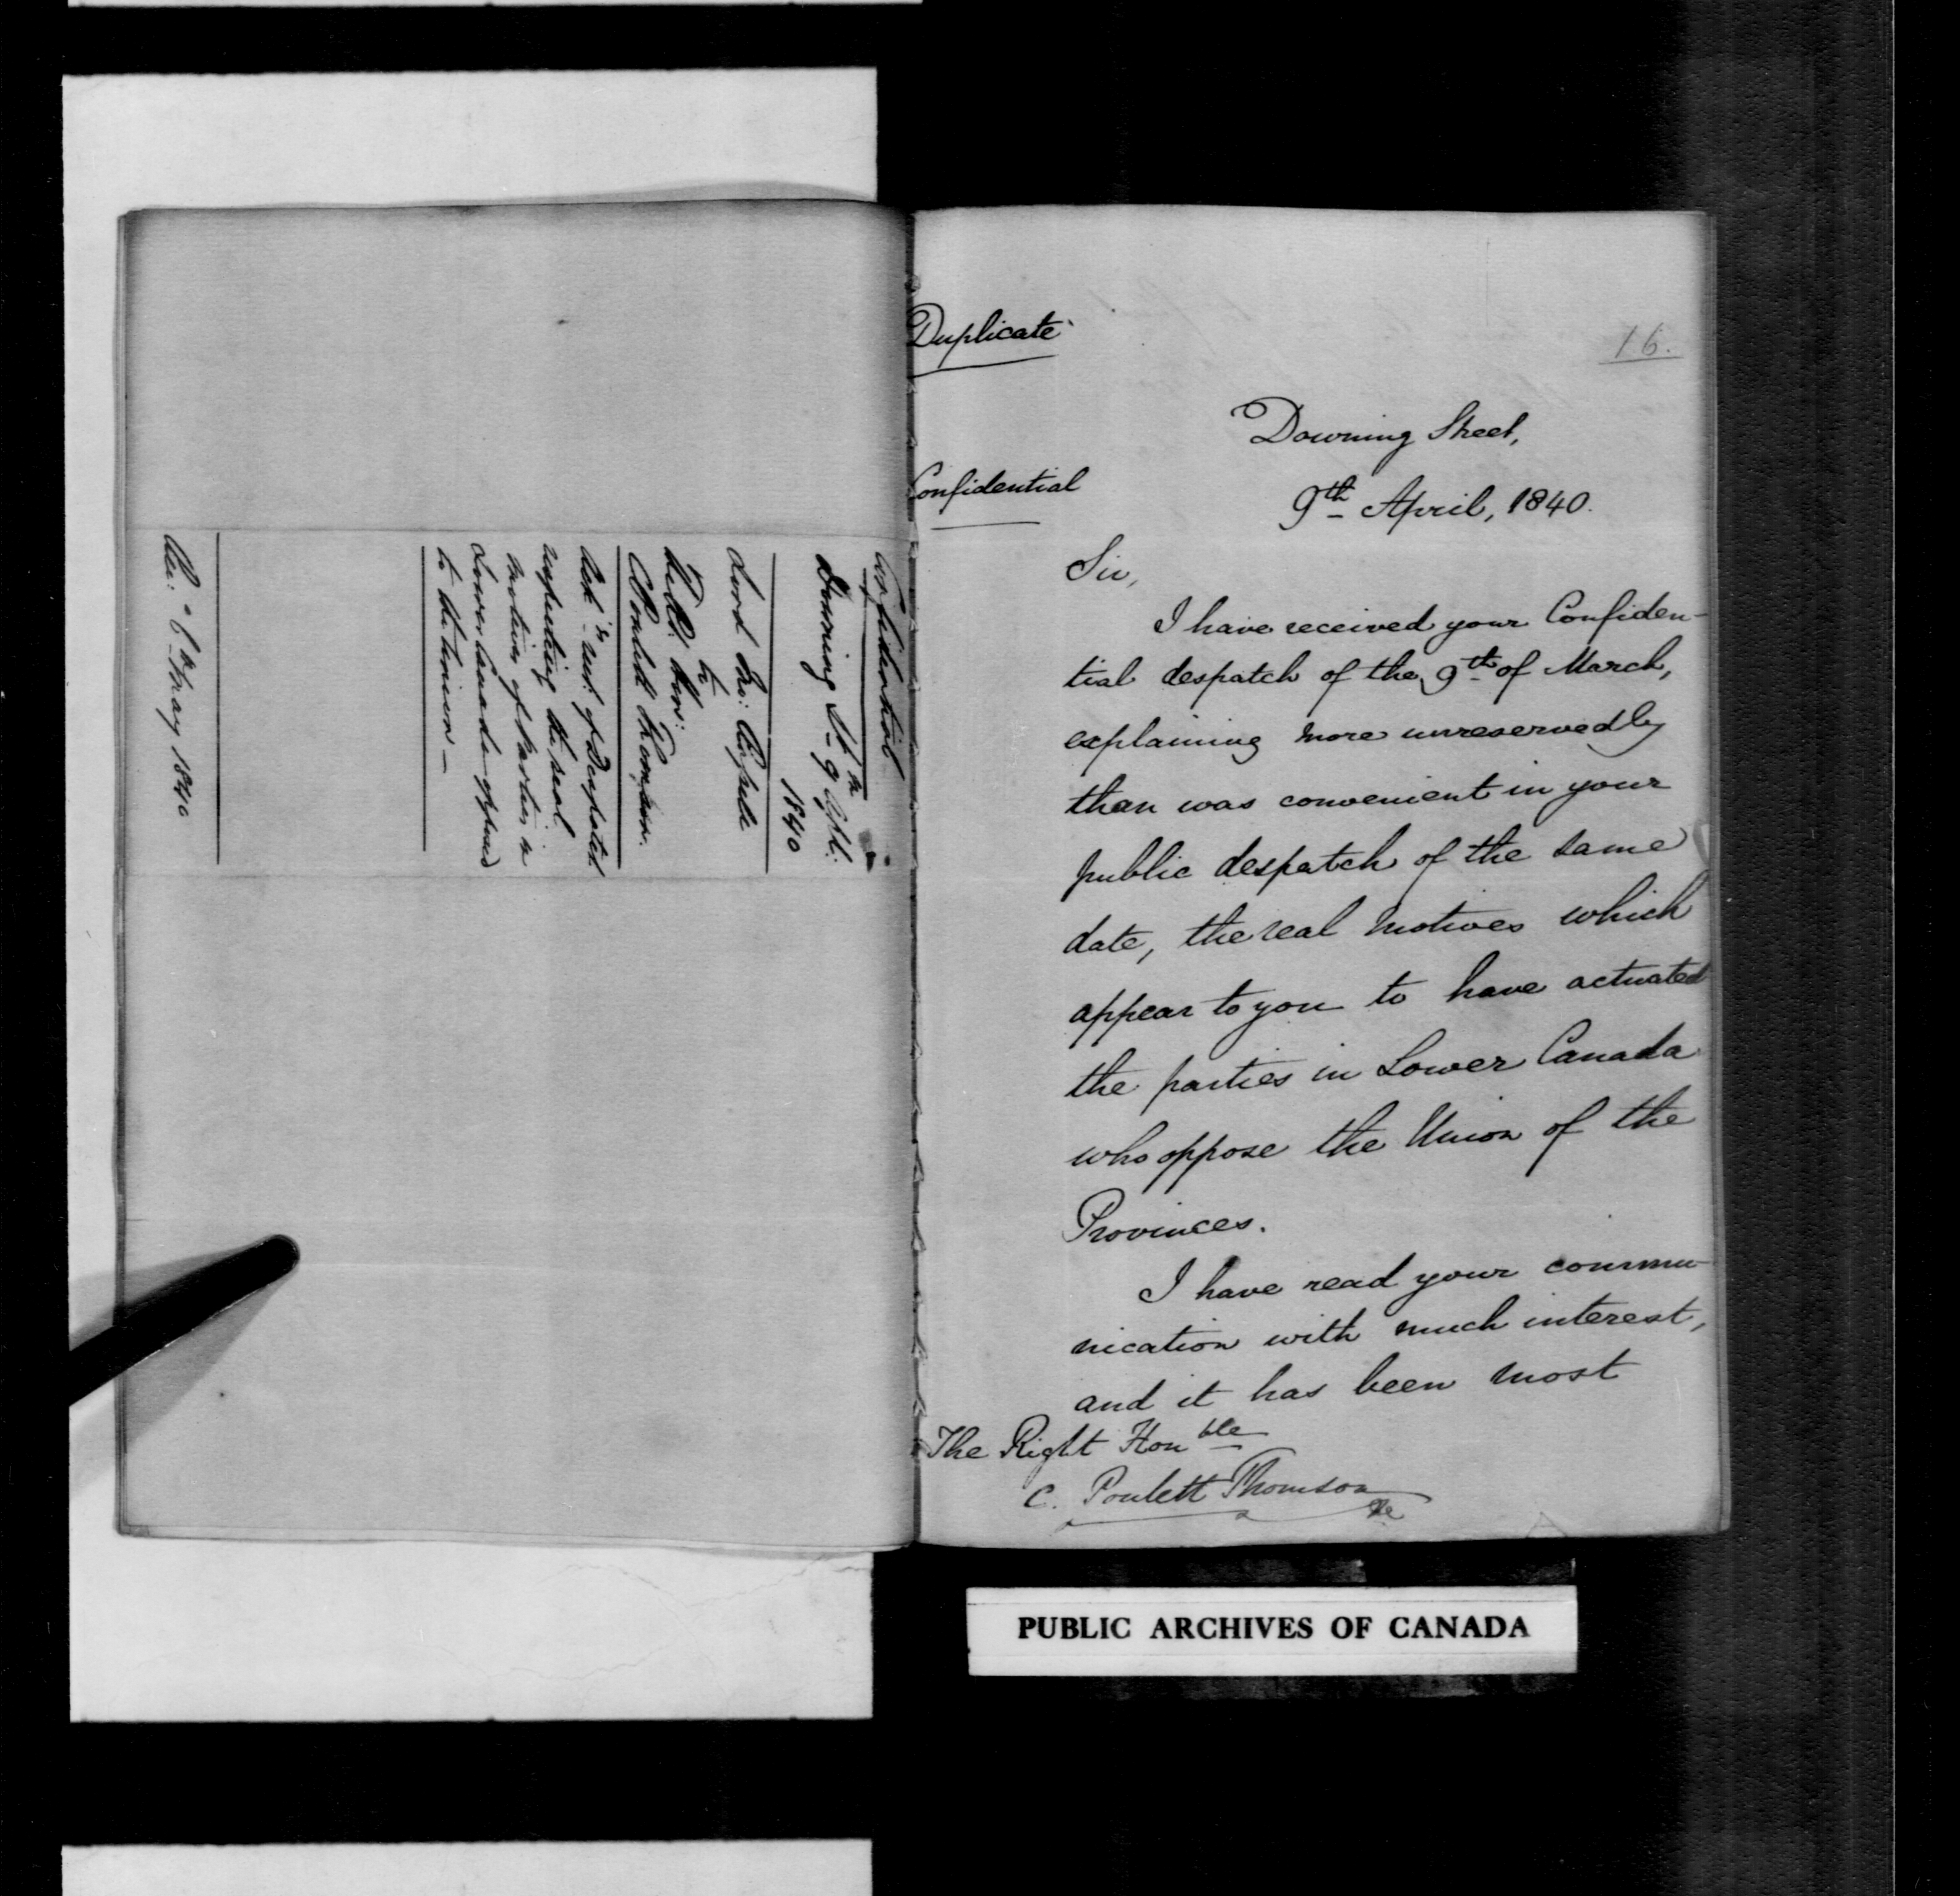 Confidential
Downing St. 9th April.
1840
Lord Jno: Russell
to
The Rt. Hon:
C Poulett Thomson.
Ack:g rect. of Despatch
respecting the real
motives of parties in
Lower Canada opposed
to the Union —
May 1840
Duplicate
16.
Downing Street,
Confidential
9th April, 1840.
Sir,
I have received your Confiden-
tial despatch of the 9th of March,
explaining more unreservedly
than was convenient in your
public despatch of the same
date, the real motives which
appear to you to have actuated
the parties in Lower Canada
who oppose the Union of the
Provinces.
I have read your commu-
nication with much interest,
and it has been most
The Right Honble
C. Poulett Thomson
PUBLIC ARCHIVES OF CANADA